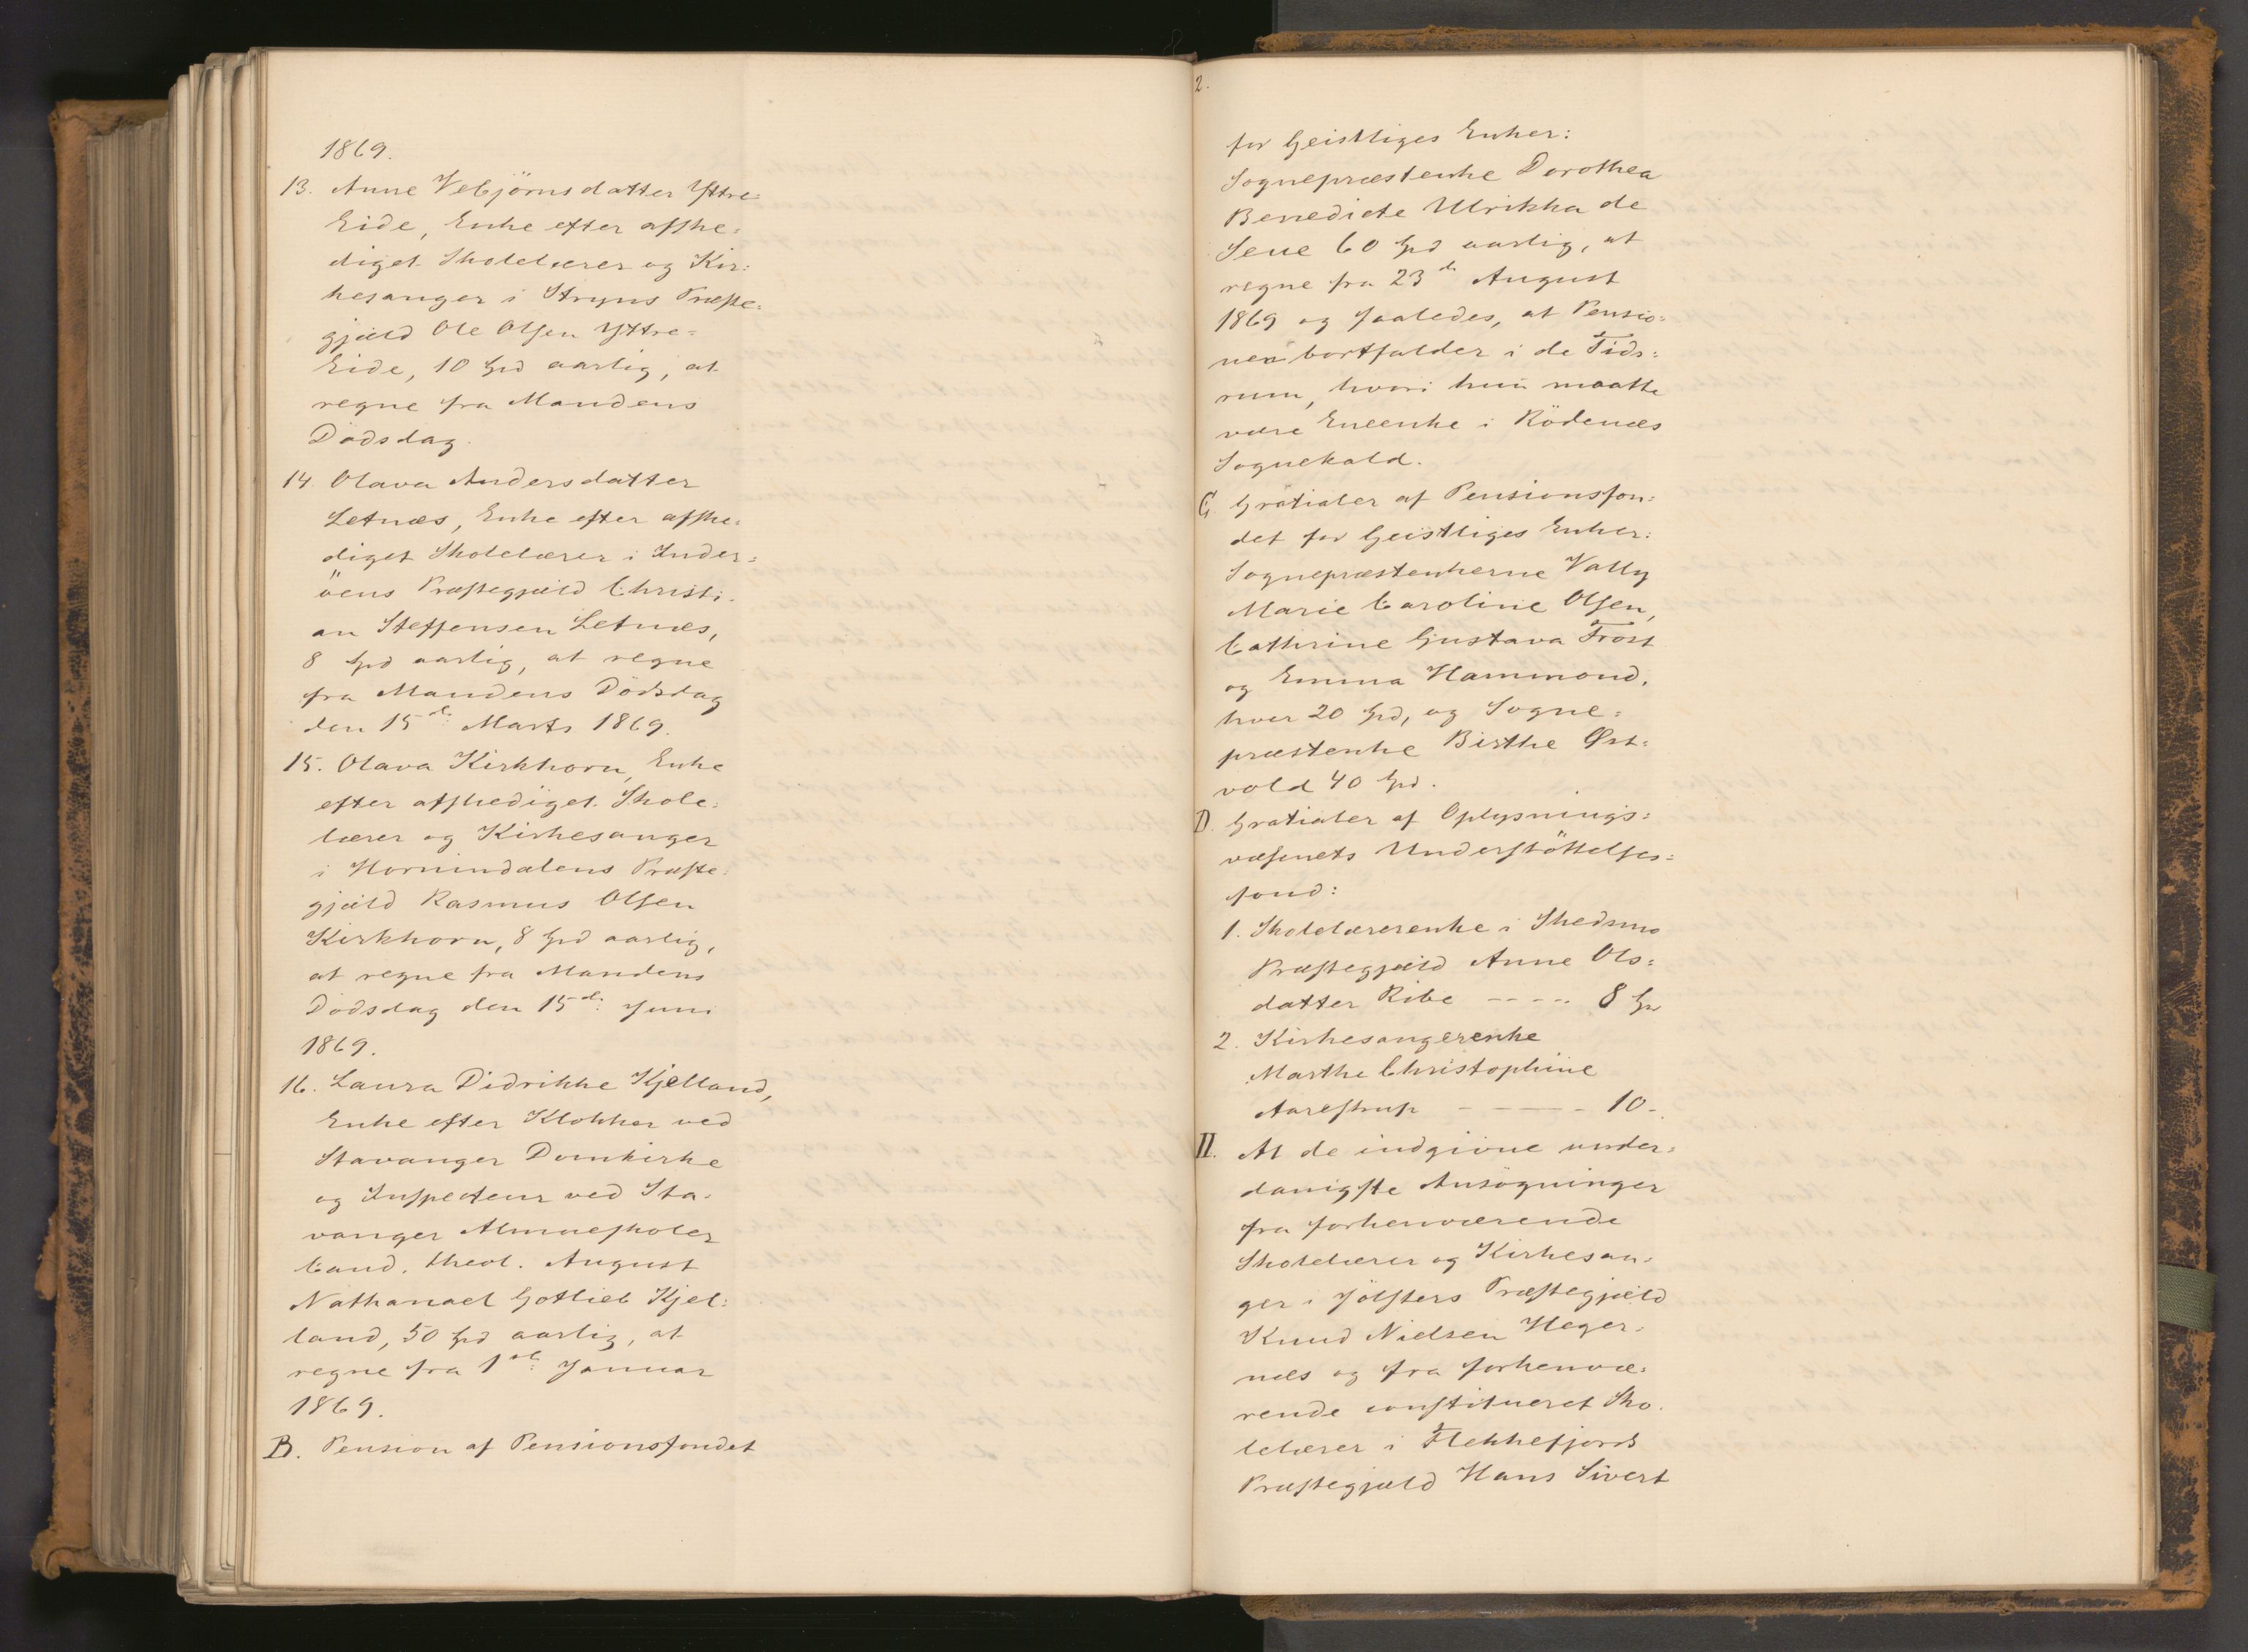 1869.
13. Anne Vebjörnsdatter Yttre=
Eide, Enke efter afske=
diget Skolelærer og Kir=
kesanger i Stryns Præste=
gjæld Ole Olsen Yttre=
Eide, 10 Spd aarlig, at
regne fra Mandens
Dödsdag.
14. Olava Andersdatter
Letnæs, Enke efter afske=
diget Skolelærer i Inder=
öens Præstegjæld Christi=
an Steffensen Letnæs,
8 Spd aarlig, at regne
fra Mandens Dödsdag
den 15de Marts 1869.
15. Olava Kirkhorn, Enke
efter afskediget Skole=
lærer og Kirkesanger
i Hornindalens Præste=
gjæld Rasmus Olsen
Kirkhorn, 8 Spd aarlig,
at regne fra Mandens
Dödsdag den 15de Juni
1869.
16. Laura Didrikke Kjelland,
Enke efter Klokker ved
Stavanger Domkirke
og Inspecteur ved Sta=
vanger Almueskoler
Cand. theol. August
Nathanael Gotlieb Kjel=
land, 50 Spd aarlig, at
regne fra 1ste Januar
1869.
B. Pension af Pensionsfondet
2.
for Geistliges Enker:
Sognepræstenke Dorothea
Benedicte Ulrikka de
Seue 60 Spd aarlig, at
regne fra 23de August
1869 og saaledes, at Pensio=
nen bortfalder i de Tids=
rum, hvori hun maatte
være Eneenke i Rödenæs
Sognekald.
C. Gratialer af Pensionsfon=
det for Geistliges Enker:
Sognepræstenkerne Vally
Marie Caroline Olsen,
Cathrine Gustava Frost
og Emma Hammond,
hver 20 Spd, og Sogne=
præstenke Birthe Øst=
vold 40 Spd.
D. Gratialer af Oplysnings=
væsenets Understöttelses=
fond:
1. Skolelærerenke i Skedsmo
Præstegjæld Anne Ols=
datter Ribe ---- 8 Sp
2. Kirkesangerenke
Marthe Christophine
Aarestrup ---- 10-
II. At de indgivne under=
danigste Ansögninger
fra forhenværende
Skolelærer og Kirkesan=
ger i Jölsters Præstegjæld
Knud Nielsen Heger=
næs og fra forhenvæ=
rende constitueret Sko=
lelærer i Flekkefjords
Præstegjæld Hans Sivert